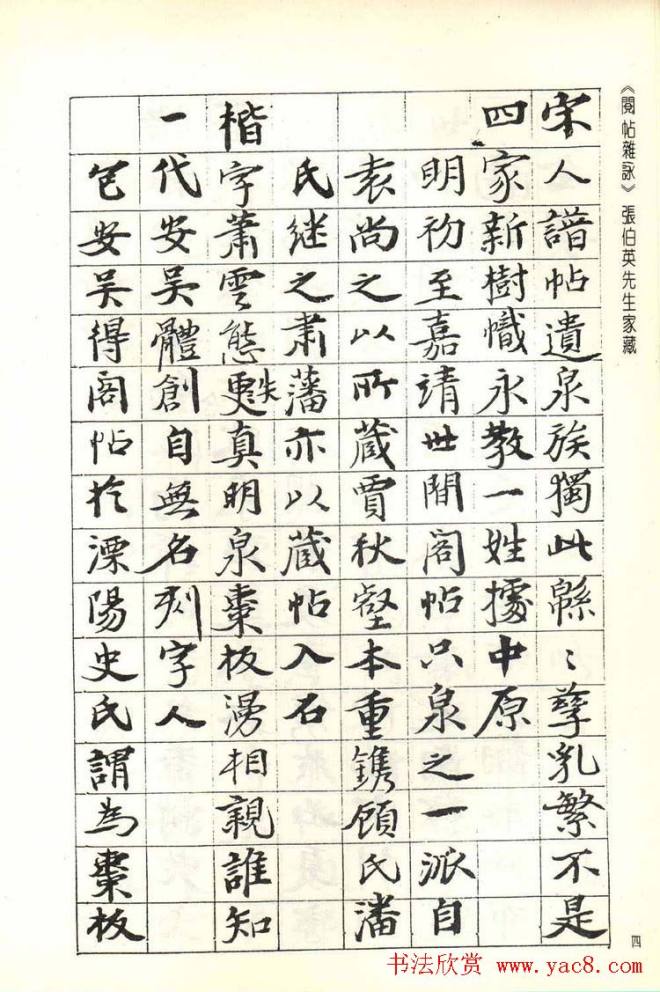 《閱帖雜詠》張伯英先生家藏
宋人譜帖遺泉族獨此緜〻孳乳繁不是
四家新樹幟永教一姓據中原
明初至嘉靖世間閣帖只泉之一派自
袁尚之以所藏賈秋壑本重鐫顧氏潘
氏繼之肅藩亦以藏帖入石
楷字蕭雲態更失真明泉棗板漫相親誰知
一代安吳體創自無名刻字人
包安吳得閣帖於溧陽史氏謂為棗板
四
书法欣赏 www.yac8.com